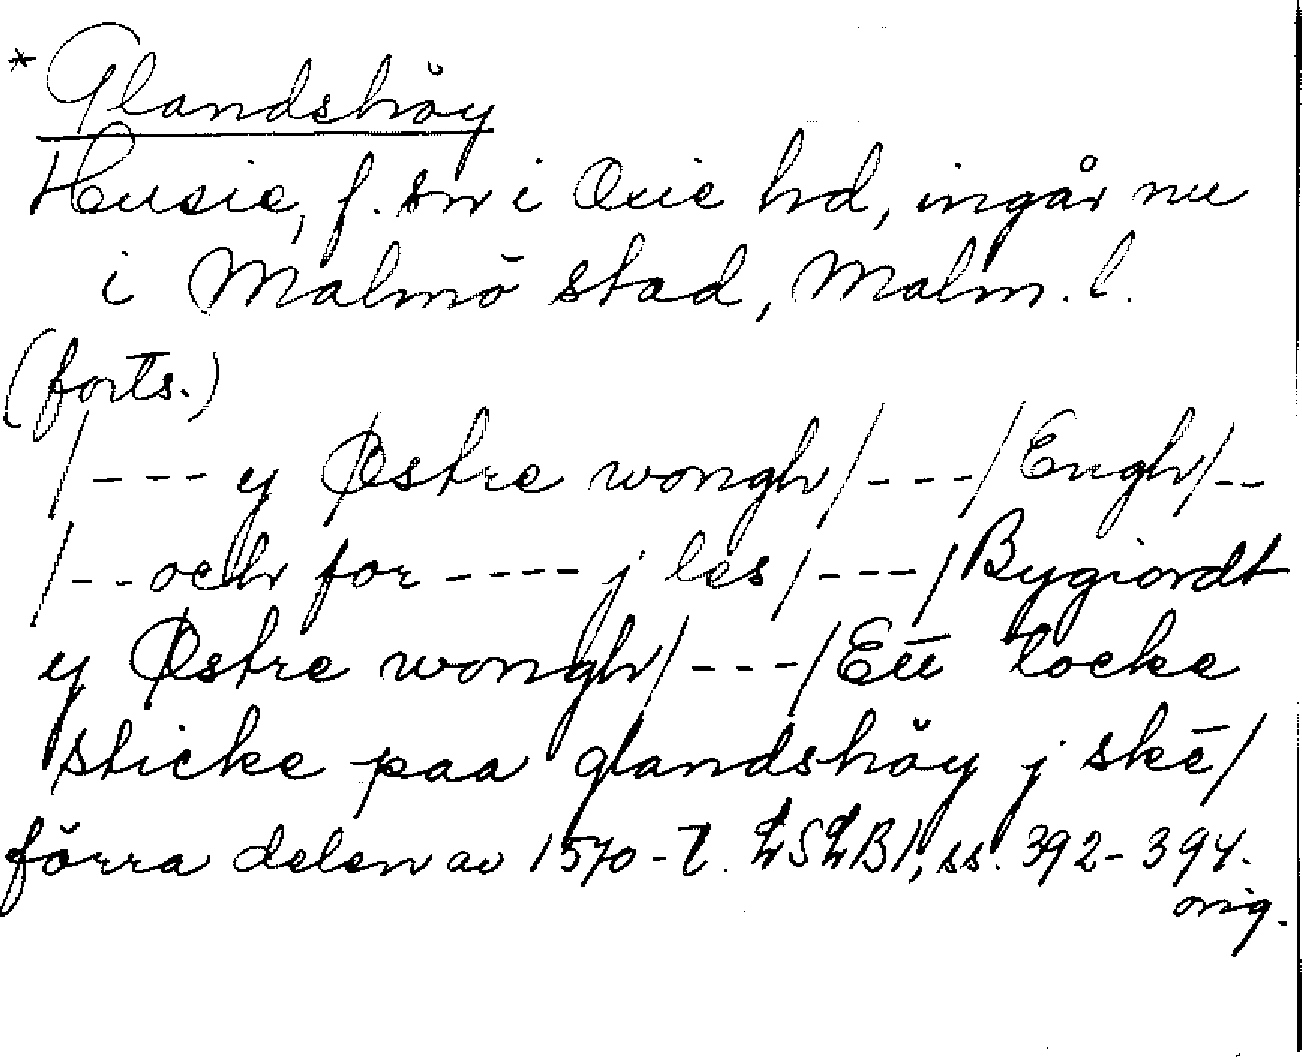 * Glandshöy
Husie, f. sn i Oxie hd, ingår nu
i Malmö stad, Malm. l.
(forts.)
/---y Østre wongh/---/Engh/--
/--och for ----j les/---/Bygiordt
y Østre wongh/---/Ett locke
sticke paa glandshöy j skē/
förra delen av 1570-t. LSLB1, ss. 392-394.
orig.